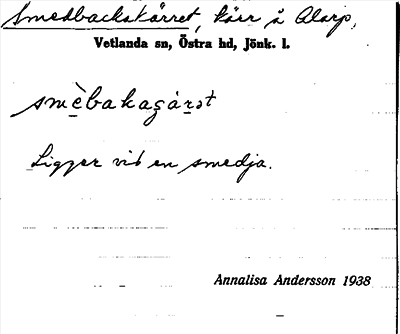 Smedbackakärret, kärr å Alarp,
Vetlanda sn, Östra hd, Jönk. l.
smèbakaçárət
Ligger vid en smedja.
Annalisa Andersson 1938